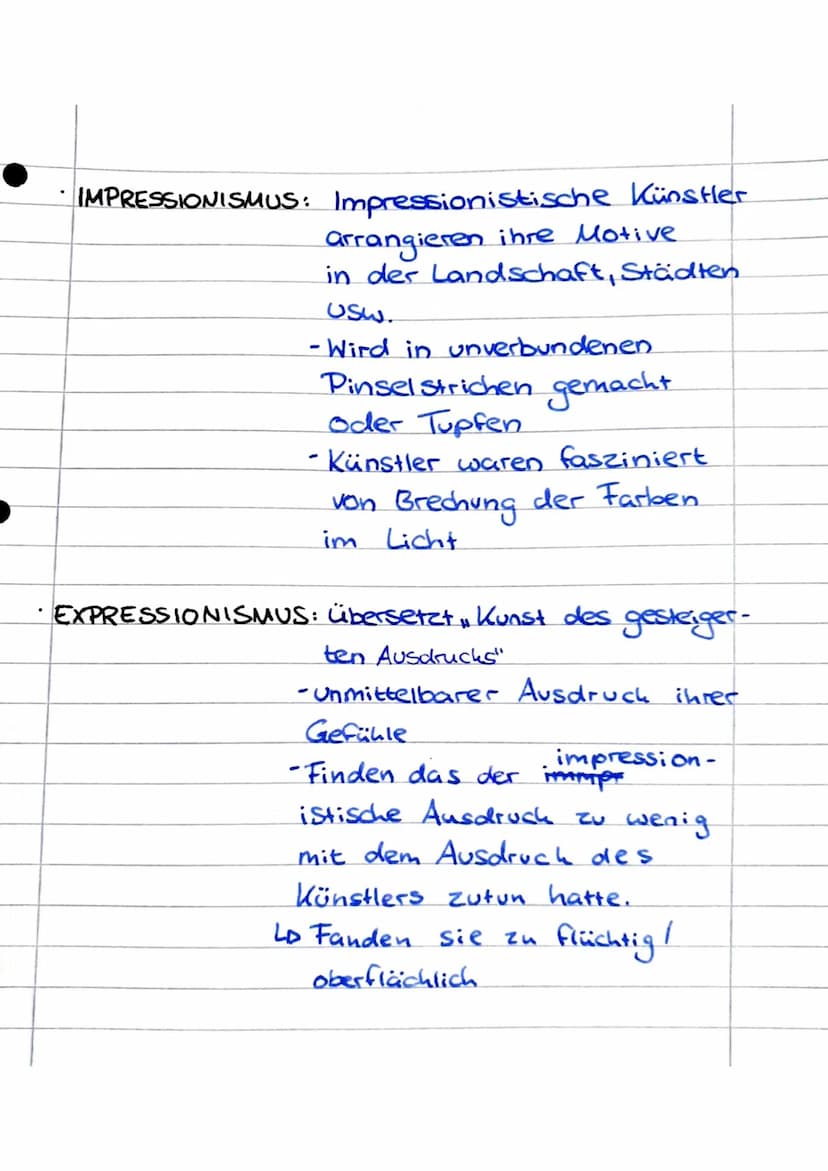 · IMPRESSIONISMUS: Impressionistische Künstler
arrangieren ihre Motive
in der Landschaft, Städten
usw.
- Wird in unverbundenen
Pinselstrichen gemacht
oder Tupfen
- Künstler waren fasziniert
von Brechung der Farben
im Licht
· EXPRESSIONISMUS: Übersetzt „Kunst des gesteiger-
ten Ausdrucks"
- unmittelbarer Ausdruck ihrer
Gefühle
- Finden das der impression-
istische Ausdruck zu wenig
mit dem Ausdruck des
Künstlers zutun hatte.
↳ Fanden sie zu flüchtig/
oberflächlich